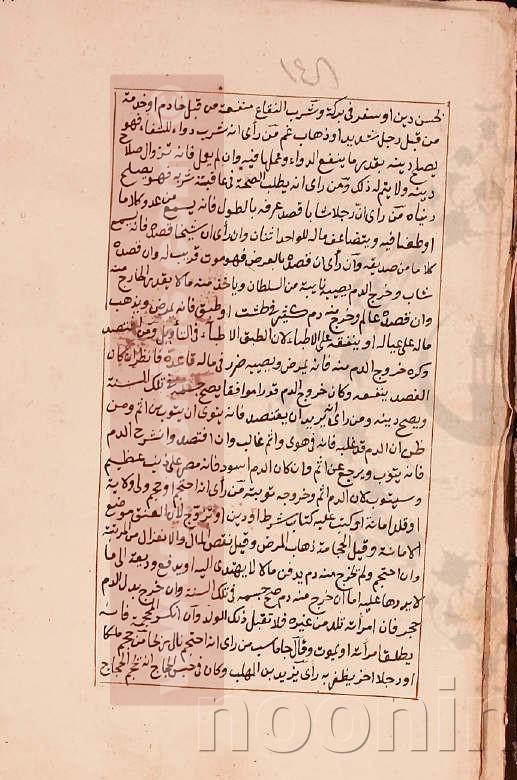 ١٤٨
لحسن دين او سفر فى بركة وشرب الفقاع منفعة من قبل خادم او خدمة
من قبل رجل شديد او ذهاب غم من راى انه شرب دواء للشفاء فهو
يصلح دينه بقدر ما ينفع الدواء وعمل ما فيه وان لم يبول فانه تزوال صلاح
دينه ولا يتم له ذلك ومن راى انه يطلب الصحة فى عاقبة شربه فهو يصلح
دنياه من راى ان رجلا شابا قصد عرقه بالطول فانه يسمع من عدو كلاما
او طعنا فيه ويتضاعف ماله للواحد اثنان وان راى ان شيخا فصده فانه يسمع
كلاما من صديقه وان راى ان فصده بالعرض فهو موت قريب له وان فصده
شاب وخرج الدم يصيبه نايبة من السلطان وياخذ منه مالا بقدر الخارج منه
وان فصده عالم وخرج منه دم كثير فى طشت او طبق فانه يمرض ويذهب
ماله على عياله او ينفقه على الاطباء لان الطبق الاطباء فى التاويل ومن افتصد
وكره خروج الدم منه فانه يمرض ويصيبه ضرر فى ماله قاعدة فانظر ان كان
الفصد ينفعه وكان خروج الدم قدرا موافقا يصح جسمه فى تلك السنة
ويصح دينه ومن راى انه يريد ان يفتصد فانه ينوى ان يتوب من اثم ومن
ظن ان الدم قد غلبه فانه فى هوى واثم غالب وان افتصد وانسرح الدم
فانه يتوب ويرجع عن اثم وان كان الدم اسود فانه مصر على ذنب عظيم
وسيتوب لان الدم اثم وخروجه توبته من راى انه احتجم او حجم ولى ولاية
او قلد امانة او كتب عليه كتاب شرط او دين او تزوج لان العنق موضع
الامانة وقيل الحجامة ذهاب المرض وقيل نقص المال والانعزال من المرتبة
وان احتجم ولم يخرج منه دم يدفن مالا لا يهتدى اليه او يدفع وديعة الى ما
لا يردها عليه اما ان خرج منه دم صح جسمه فى تلك السنة وان خرج بدل الدم
حجر فان امراته تلد من غيره فلا تقبل ذلك الولد وان انكسر المحجمة فانه
يطلق امراته او تموت وقال جاماسب من راى انه احتجم نال ربحا من حجم ملكا
او رجلا اخر يظفر به راى يزيد بن المهلب وكان فى حبس الحجاج انه يحجم الحجاج
noonin